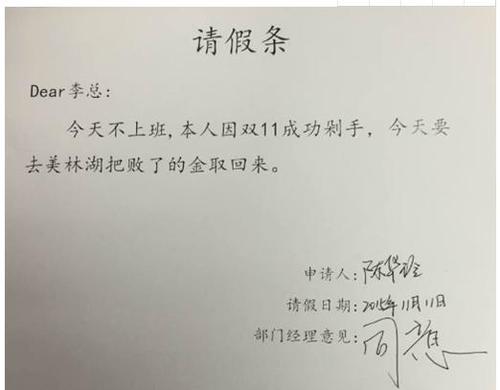 请假条
Dear李总:
今天不上班,本人因双11成功剁手，今天要
去美林湖把败了的金取回来。
申请人:陈华玲
请假日期:2015年11月11日
部门经理意见:同意